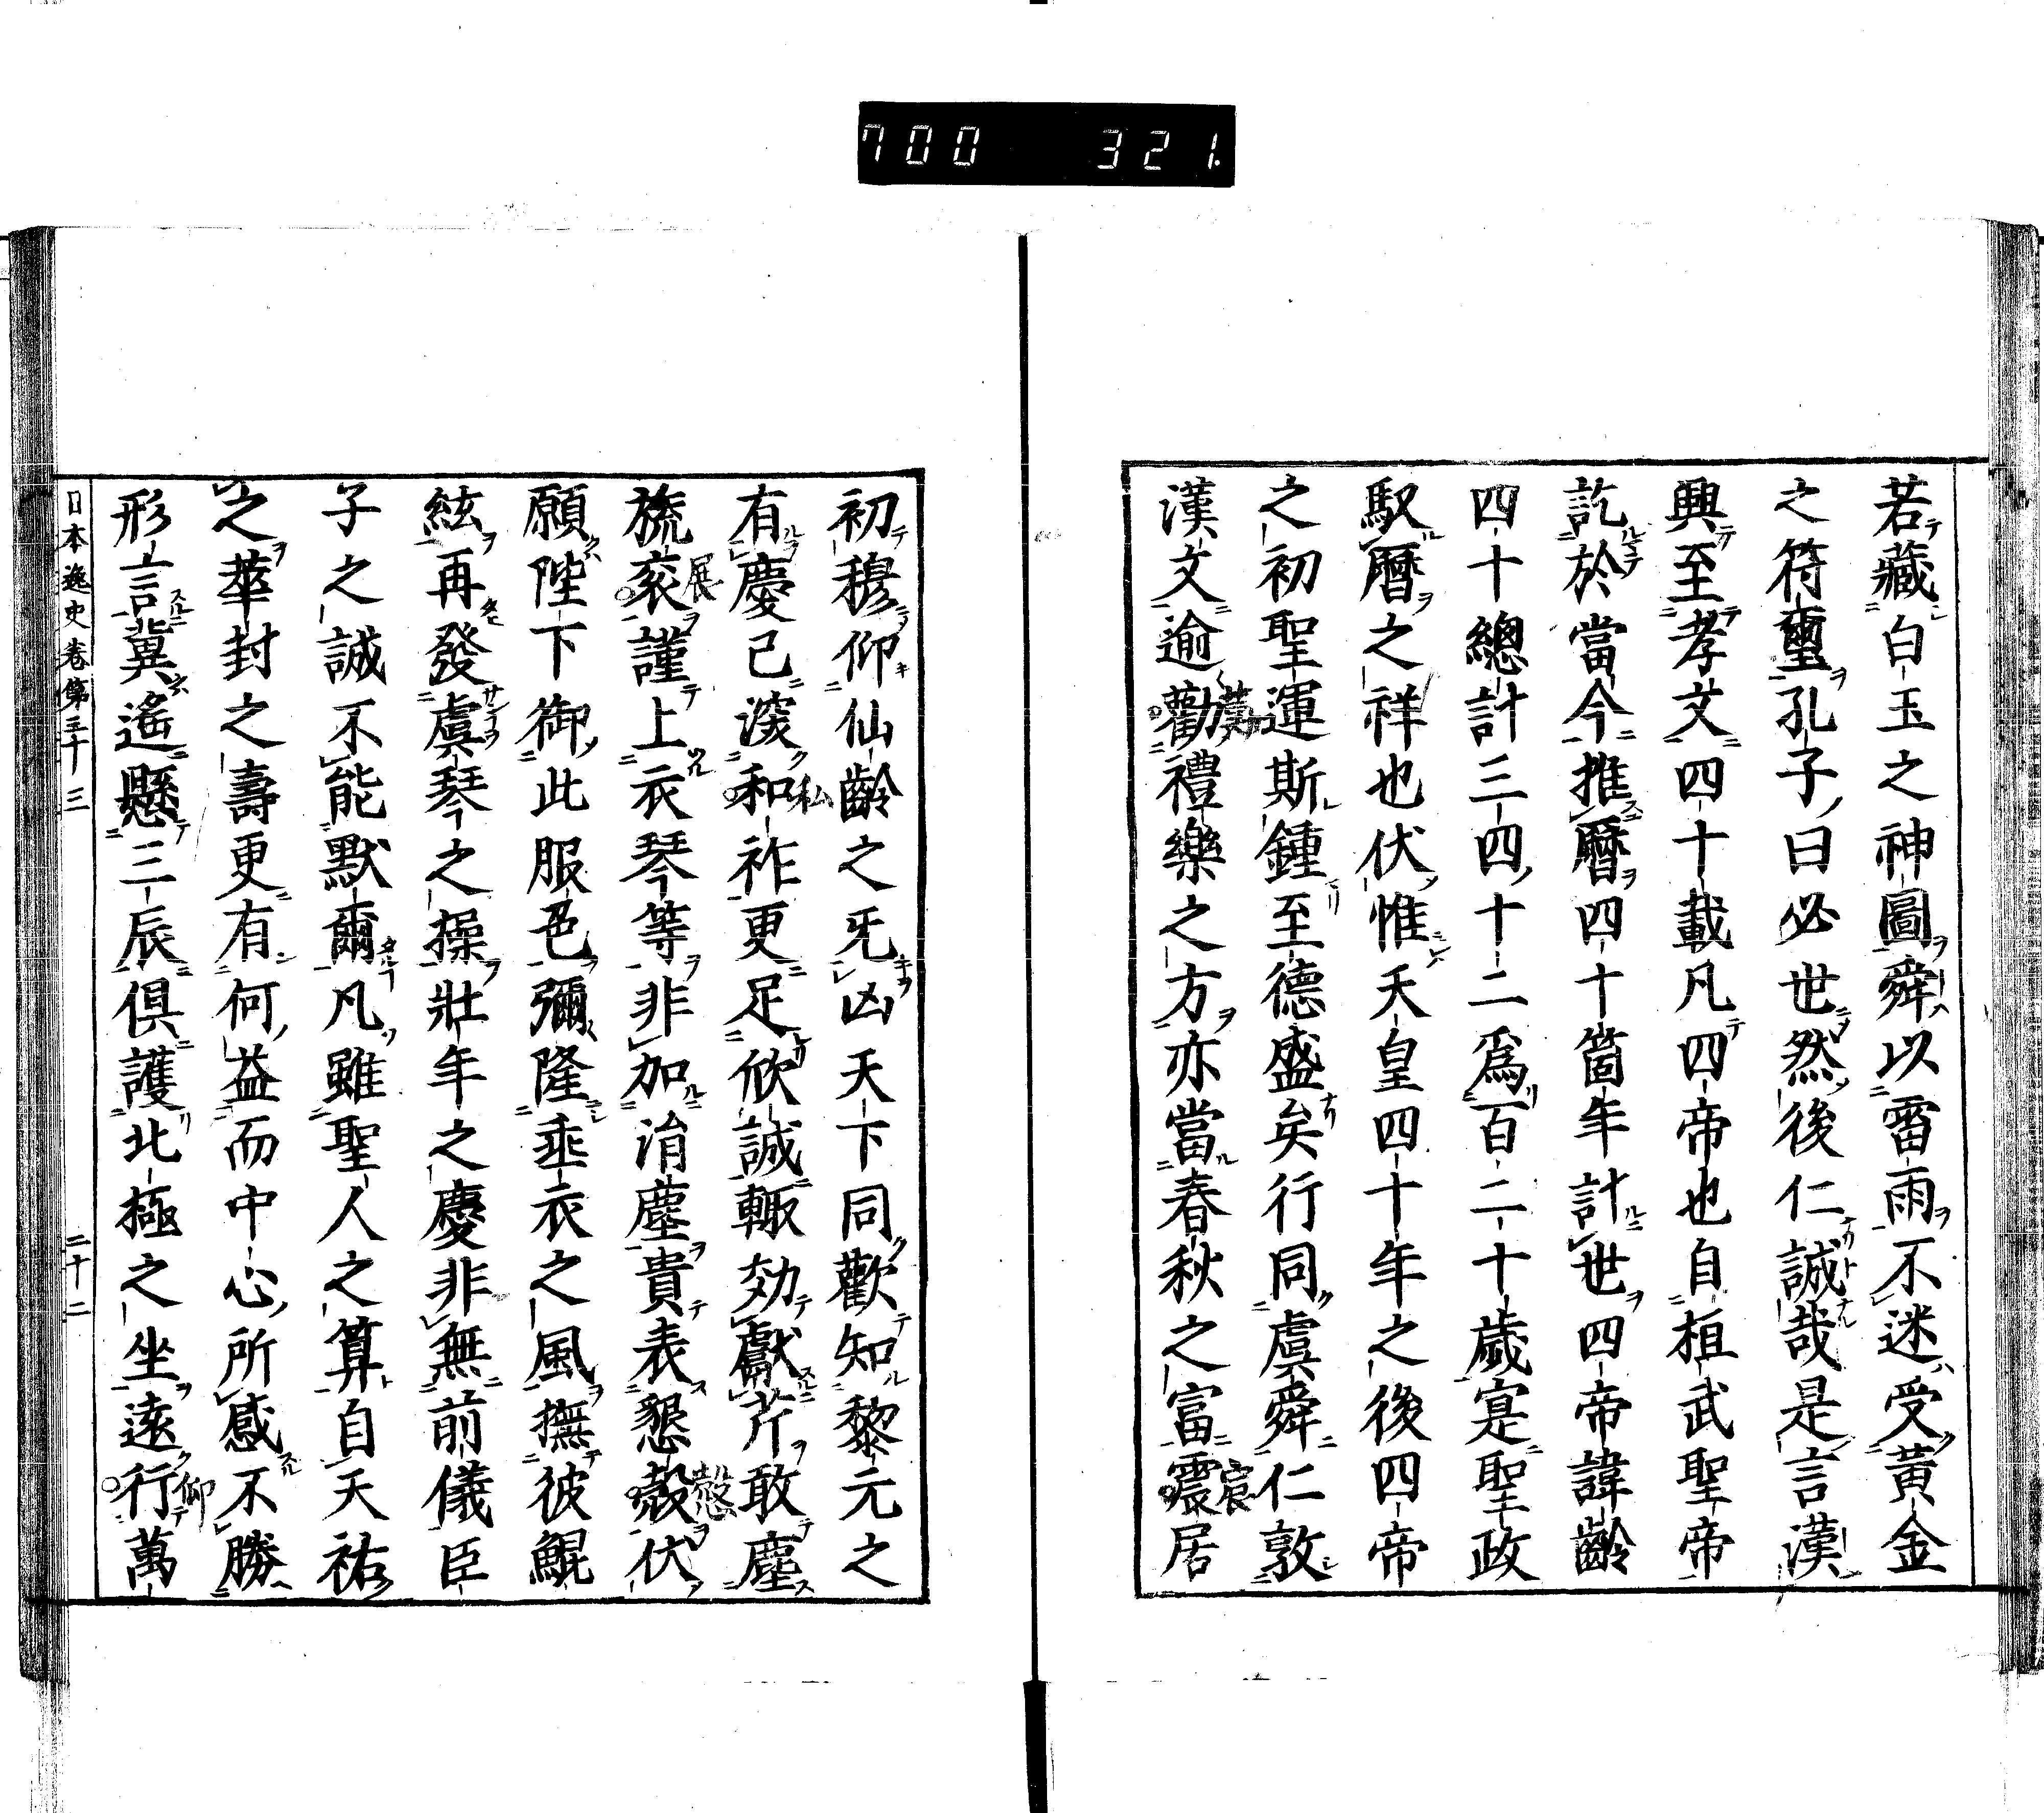 700 321.
若藏白玉之神圖舜以雷雨不迷受黃金
之符璽孔子曰必世然後仁誠哉是言漢
興至孝文四十載凡四帝也自桓武聖帝
訖於當今推曆四十箇年計世四帝諱齡
四十總計三四十二爲百二十歲寔聖政
馭曆之祥也伏惟天皇四十年之後四帝
之初聖運斯鍾至德盛矣行同虞舜仁敦
漢文逾勸禮樂之方亦當春秋之富震居
初穆仰仙齡之旡凶天下同歡知黎元之
有慶己深和祚更足欣誠輙効獻芹敢塵
旒衮謹上衣琴等非加涓塵貴表懇愨伏
願陛下御此服色彌隆垂衣之風撫彼鯤
絃再發虞琴之操壯年之慶非無前儀臣
子之誠不能默爾凡雖聖人之算自天祐
之華封之壽更有何益而中心所感不勝
形言冀遙懸三辰俱護北極之坐遠行萬
日本逸史卷第三十三 二十二